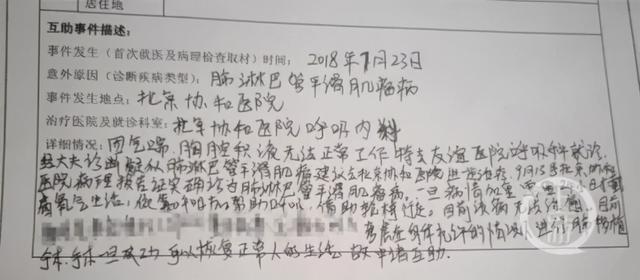 居住地
互助事件描述：
事件发生（首次就医及病理检查取材）时间：2018年7月23日
意外原因（诊断疾病类型）：肺淋巴管平滑肌瘤病
事件发生地点：北京协和医院
治疗医院及就诊科室：北京协和医院呼吸内科
详细情况：因气喘、胸腔积液无法正常工作 特去友谊医院呼吸科就诊，
经大夫诊断疑似肺淋巴管平滑肌瘤病建议去北京协和医院进一步治疗，9月13
医院病理报告证实确诊为肺淋巴管平滑肌瘤病，一旦病情加重
氧气生活：依靠 帮助呼吸，借助轮椅行走。目前该病无法治愈 目前
条件允许的情况 进行肺移植
手术，手术一旦成功 可以恢复正常人的生活，故申请互助。